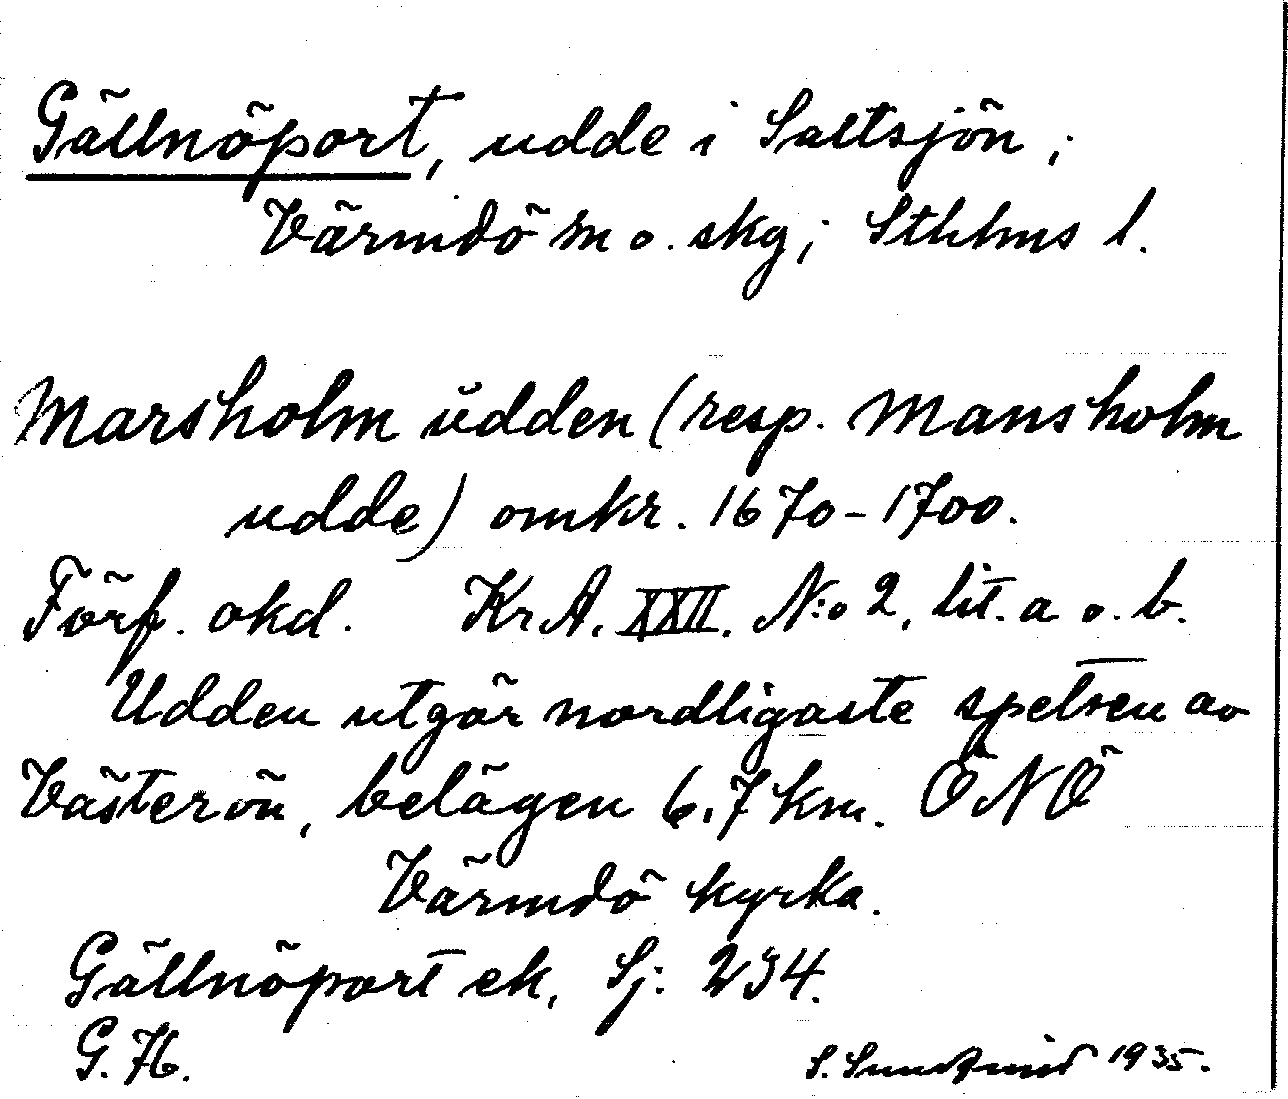 Gällnöport, udde i Saltsjön;
Värmdö m o. skg; Sthlms l.
Marsholm udden (resp. Mansholm
udde) omkr. 1670-1700.
Förf. okd. KrA. XXII. N:o 2, lit. a o. b.
Udden utgör nordligaste spetsen av
Västerön, belägen 6,7 km. ÖNÖ
Värmdö kyrka.
Gällnöport ek, Sj: 234.
G. 76.
S. 1935.